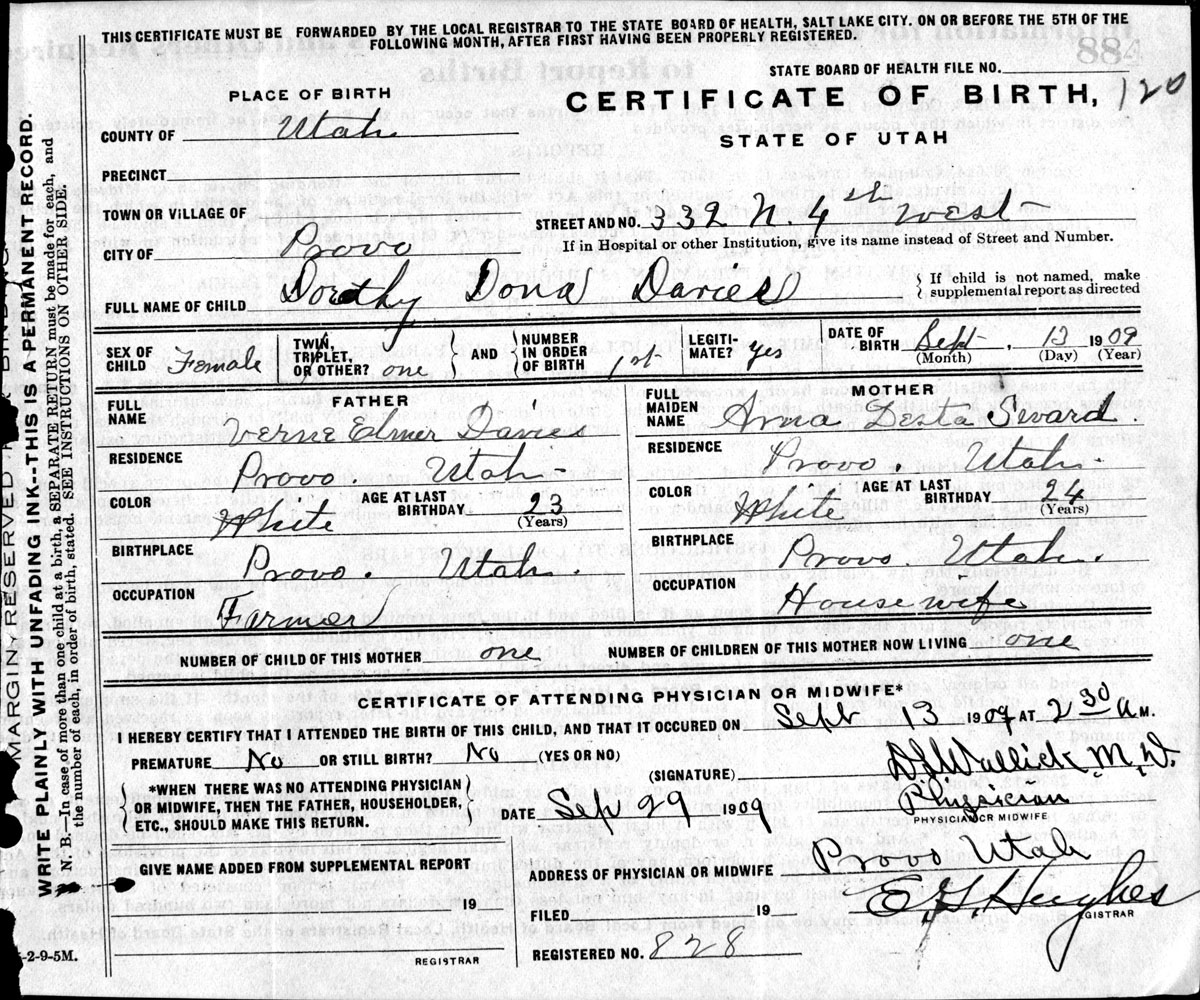 THIS CERTIFICATE MUST BE FORWARDED BY THE LOCAL REGISTRAR TO THE STATE BOARD OF HEALTH, SALT LAKE CITY. ON OR BEFORE THE 5TH OF THE
FOLLOWING MONTH, AFTER FIRST HAVING BEEN PROPERLY REGISTERED.
STATE BOARD OF HEALTH FILE NO.
PLACE OF BIRTH
CERTIFICATE OF BIRTH, 120
COUNTY OF Utah
STATE OF UTAH
PRECINCT
TOWN OR VILLAGE OF
STREET AND NO. 332 N. 4th West
CITY OF Provo
If in Hospital or other Institution, give its name instead of Street and Number.
FULL NAME OF CHILD Dorothy Dona Davies
If child is not named, make
supplemental report as directed
SEX OF CHILD Female TWIN, TRIPLET, OR OTHER? one AND NUMBER IN ORDER OF BIRTH 1st LEGITIMATE? yes DATE OF BIRTH Sept. 13 1909
(Month) (Day) (Year)
FATHER
FULL NAME Verne Elmer Davies
RESIDENCE Provo. Utah
COLOR White AGE AT LAST BIRTHDAY 23
(Years)
BIRTHPLACE Provo. Utah.
OCCUPATION Farmer
MOTHER
FULL MAIDEN NAME Anna Desta Sward
RESIDENCE Provo. Utah.
COLOR White AGE AT LAST BIRTHDAY 24
(Years)
BIRTHPLACE Provo. Utah.
OCCUPATION Housewife
NUMBER OF CHILD OF THIS MOTHER one NUMBER OF CHILDREN OF THIS MOTHER NOW LIVING one
CERTIFICATE OF ATTENDING PHYSICIAN OR MIDWIFE*
I HEREBY CERTIFY THAT I ATTENDED THE BIRTH OF THIS CHILD, AND THAT IT OCCURED ON Sept 13 1909 AT 2 30 A M.
PREMATURE No OR STILL BIRTH? No (YES OR NO)
(SIGNATURE)
*WHEN THERE WAS NO ATTENDING PHYSICIAN
OR MIDWIFE, THEN THE FATHER, HOUSEHOLDER,
ETC., SHOULD MAKE THIS RETURN.
DATE Sep 29 1909
Physician
PHYSICIAN OR MIDWIFE
GIVE NAME ADDED FROM SUPPLEMENTAL REPORT
19
REGISTRAR
ADDRESS OF PHYSICIAN OR MIDWIFE Provo Utah
FILED 19 Hughes
REGISTRAR
REGISTERED NO. 828
-2-9-5M.
MARGIN RESERVED
WRITE PLAINLY WITH UNFADING INK--THIS IS A PERMANENT RECORD.
N. B.—In case of more than one child at a birth, SEPARATE RETURN must be made for each, and
the number of each, in order of birth, stated. SEE INSTRUCTIONS ON OTHER SIDE.